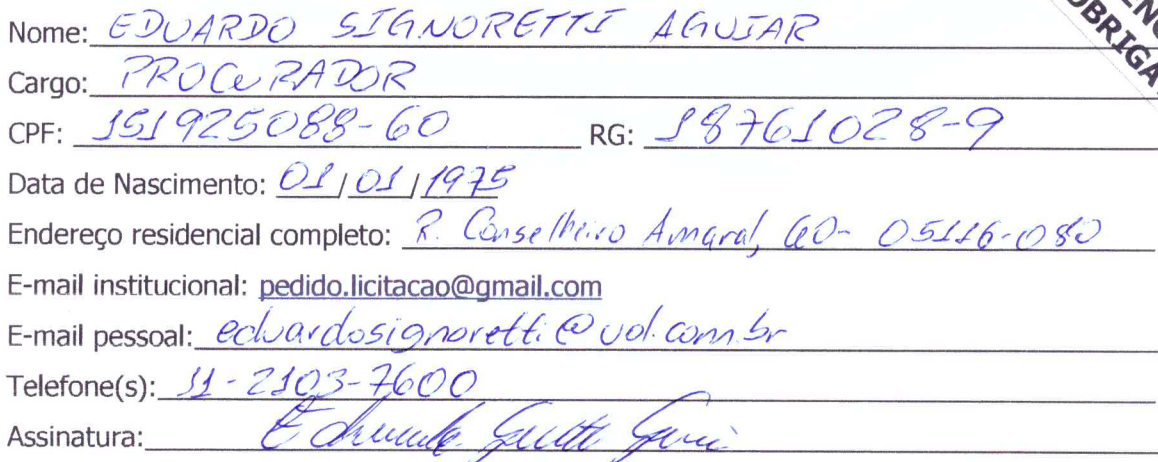 Nome: EDUARDO SIGNORETTI AGUIAR
Cargo: PROCURADOR
CPF: 151925088-60 RG: 18761028-9
Data de Nascimento: 01/01/1975
Endereço residencial completo: R. Conselheiro Amaral, 60 - 05116-080
E-mail institucional: pedido.licitacao@gmail.com
E-mail pessoal: eduardosignoretti@uol.com.br
Telefone(s): 11-2103-7600
Assinatura: